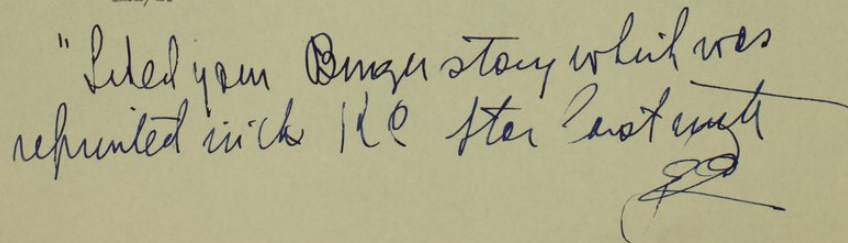 "Liked your Burger story which was
reprinted in the KC Star last night